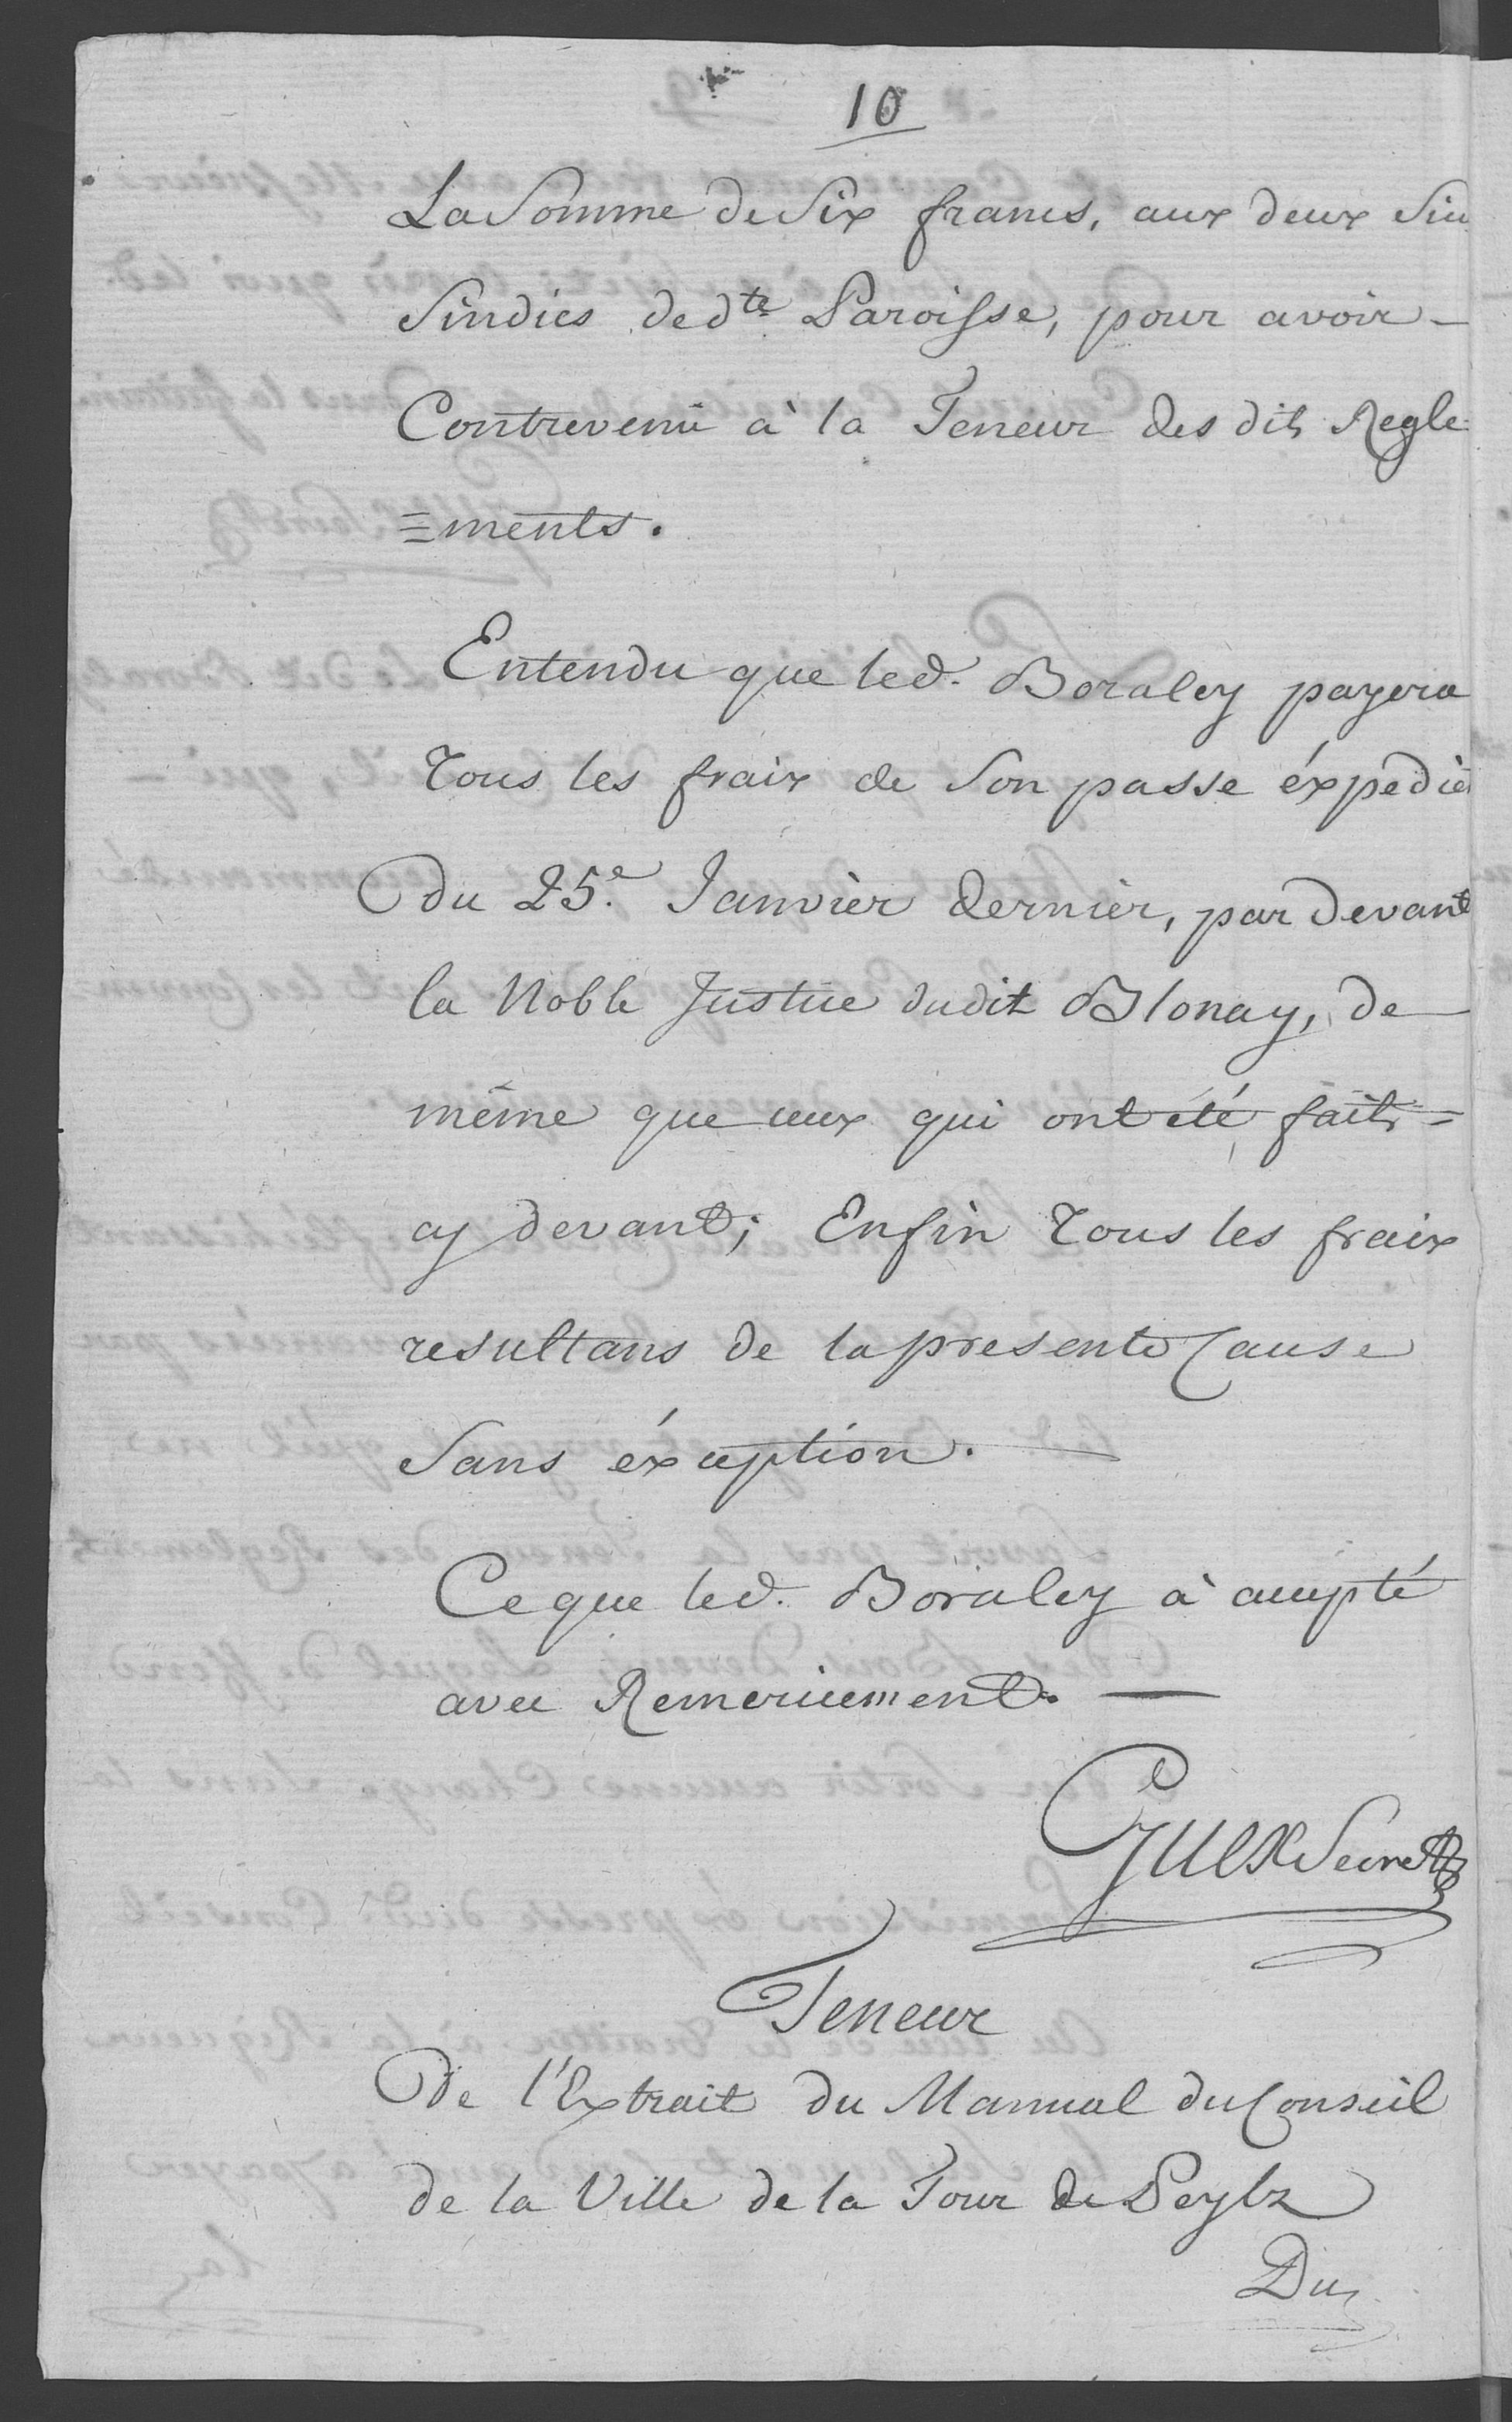 10
La Somme de Six francs, aux deux Sin
Sindics de dte Paroisse, pour avoir -
Contrevenu à la Teneur des dits Regle=
=ments.
Entendu que led. Boraley payera
Tous les fraix de Son passe éxpedié
du 25e. Janvier dernier, par devant
la Noble Justice dudit Blonay, de
même que ceux qui ont été faits =
cy devant; Enfin Tous les fraix
resultans de la presente Cause
Sans éxception. —
Ce que led. Boraley à accepté
avec Remerciement. —
Guex Secret
Teneur
De l'Extrait du Manual du Conseil
de la Ville de la Tour de Peylz
Du